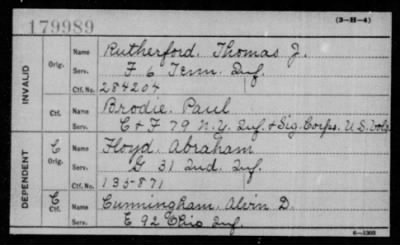 179989
(3-H-4)
INVALID
Orig.
Name Rutherford, Thomas J.
Serv. F 6 Tenn. Inf.
Ctf. No. 284204
Ctf.
Name Brodie, Paul
Serv. C & F 79 N.Y. Inf. & Sig. Corps. U.S. Vols.
DEPENDENT
C Orig.
Name Floyd, Abraham
Serv. G 31 Ind. Inf.
Ctf. No. 135-871
C Ctf.
Name Cunningham, Alvin D.
Serv. E 92 Ohio Inf.
6-1303